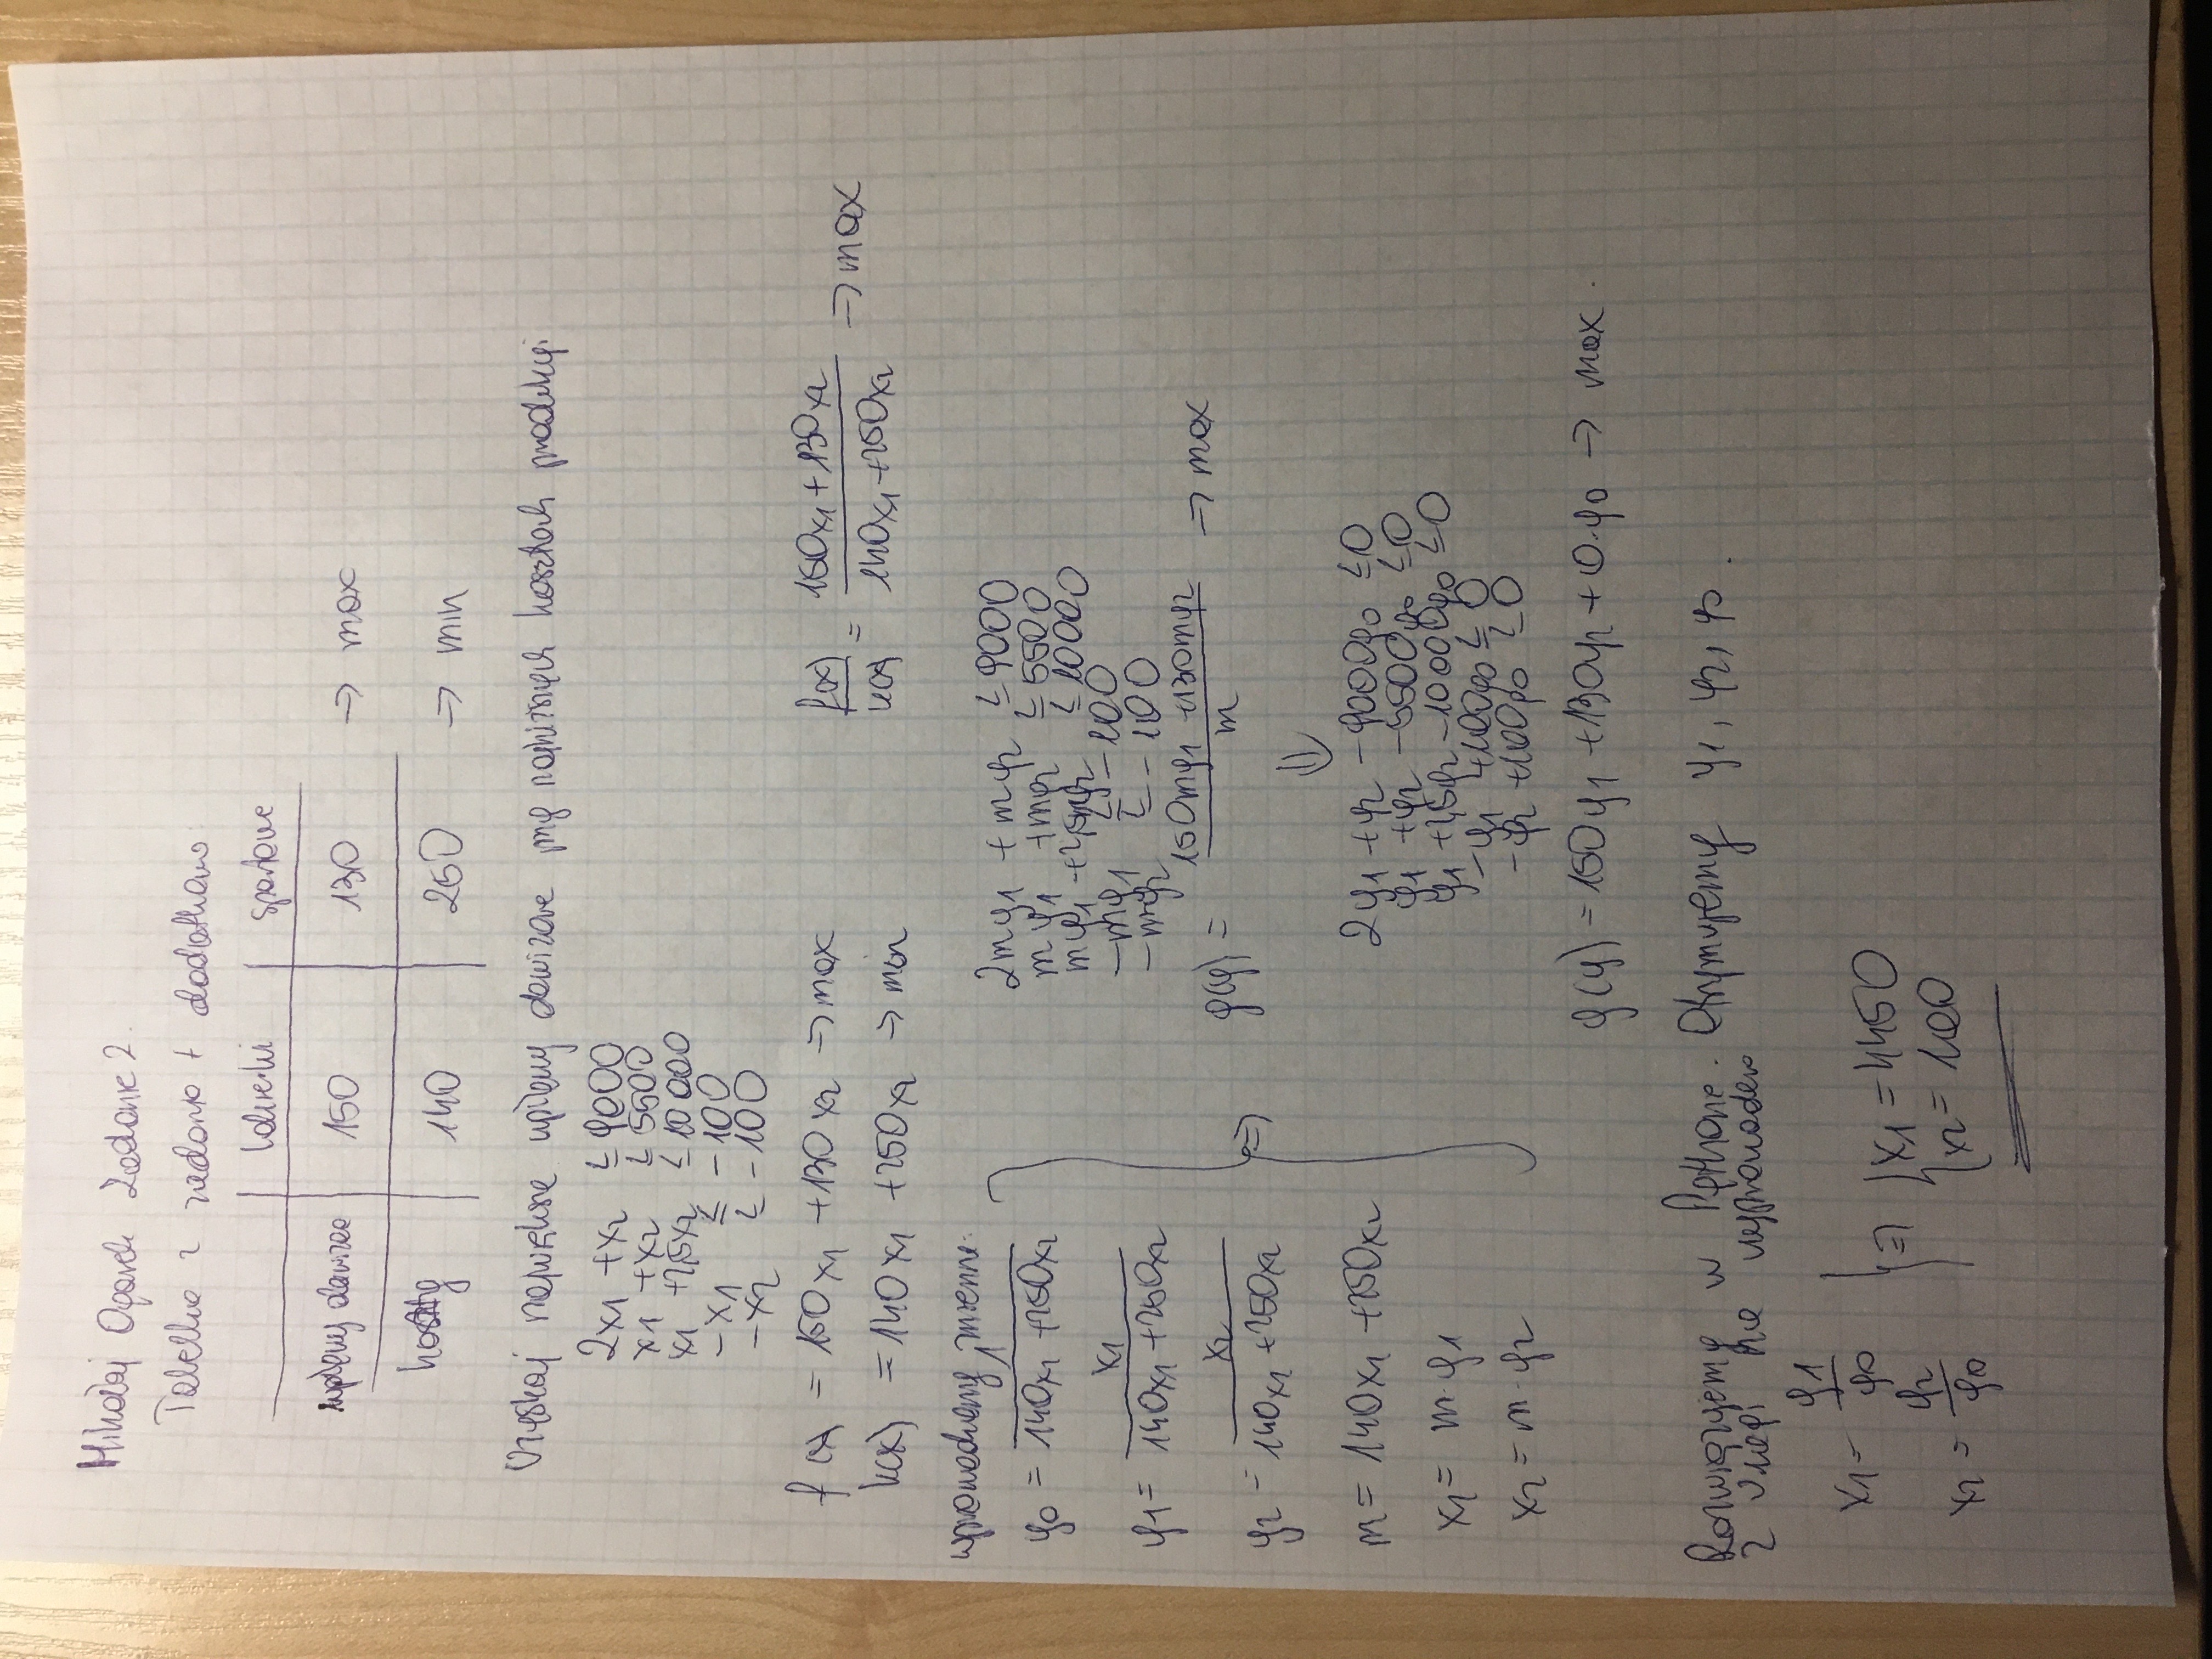 Mikołaj Oparek Zadanie 2.
Tabelka z zadania + dodatkowo
lakierki sportowe
wpływy dewizowe 150 130 → max
koszty 140 250 → min
Uzyskaj największe wpływy dewizowe przy najniższych kosztach produkcji
2x1 + x2 ≤ 9000
x1 + x2 ≤ 5500
x1 + 2,5x2 ≤ 10 000
-x1 ≤ -100
-x2 ≤ -100
f(x) = 150x1 + 130x2 → max
k(x) = 140x1 + 250x2 → min
f(x)/k(x) = (150x1 + 130x2)/(140x1 + 250x2) → max
wprowadzamy zmienne:
y0 = 1/(140x1 + 250x2)
y1 = x1/(140x1 + 250x2)
y2 = x2/(140x1 + 250x2)
m = 140x1 + 250x2
x1 = m·y1
x2 = m·y2
⇒
2my1 + my2 ≤ 9000
my1 + my2 ≤ 5500
my1 + 2,5my2 ≤ 10000
-my1 ≤ -100
-my2 ≤ -100
g(y) = (150my1 + 130my2)/m → max
⇓
2y1 + y2 - 9000y0 ≤ 0
y1 + y2 - 5500y0 ≤ 0
y1 + 2,5y2 - 10000y0 ≤ 0
-y1 + 100y0 ≤ 0
-y2 + 100y0 ≤ 0
g(y) = 150y1 + 130y2 + 0·y0 → max.
Rozwiązujemy w Pythonie. Otrzymujemy y1, y2, y0.
Z uwagi na wyprowadzenia
x1 = y1/y0
x2 = y2/y0
⇒ { x1 = 4450
x2 = 100